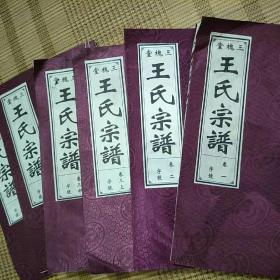 三槐堂
王氏宗譜
卷一
字號
三槐堂
王氏宗譜
卷二
字號
三槐堂
王氏宗譜
卷三上
字號
三槐堂
王氏宗譜
字號
三槐堂
王氏宗譜
字號
氏宗譜